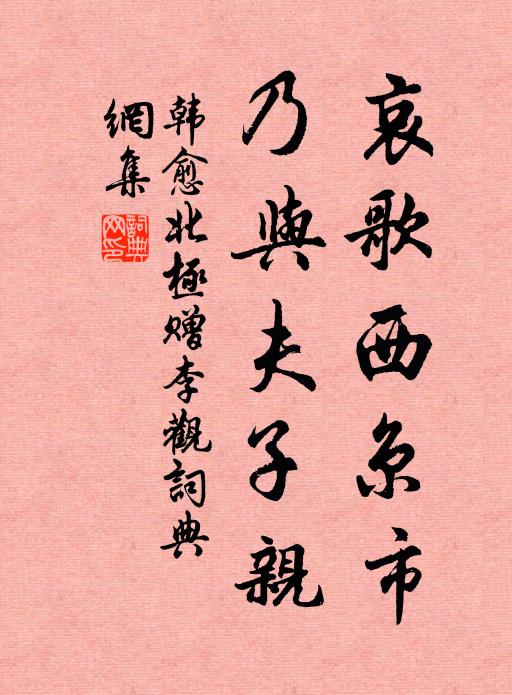 哀歌西京市
乃與夫子親
韩愈北極赠李觀詞典
網集
詞典
网印